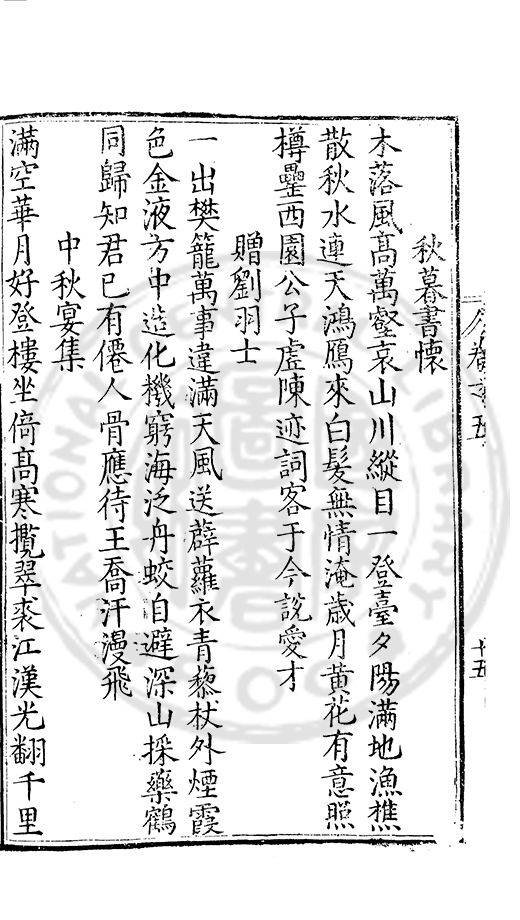 卷之五
十五
秋暮書懷
木落風髙萬壑哀山川縱目一登臺夕陽滿地漁樵
散秋水連天鴻鴈來白髮無情淹歲月黃花有意照
樽罍西園公子虛陳迹詞客于今說愛才
贈劉羽士
一出樊籠萬事違滿天風送薜蘿衣青藜杖外煙霞
色金液方中造化機窮海泛舟蛟自避深山採藥鶴
同歸知君已有僊人骨應待王喬汗漫飛
中秋宴集
滿空華月好登樓坐倚髙寒攬翠裘江漢光翻千里